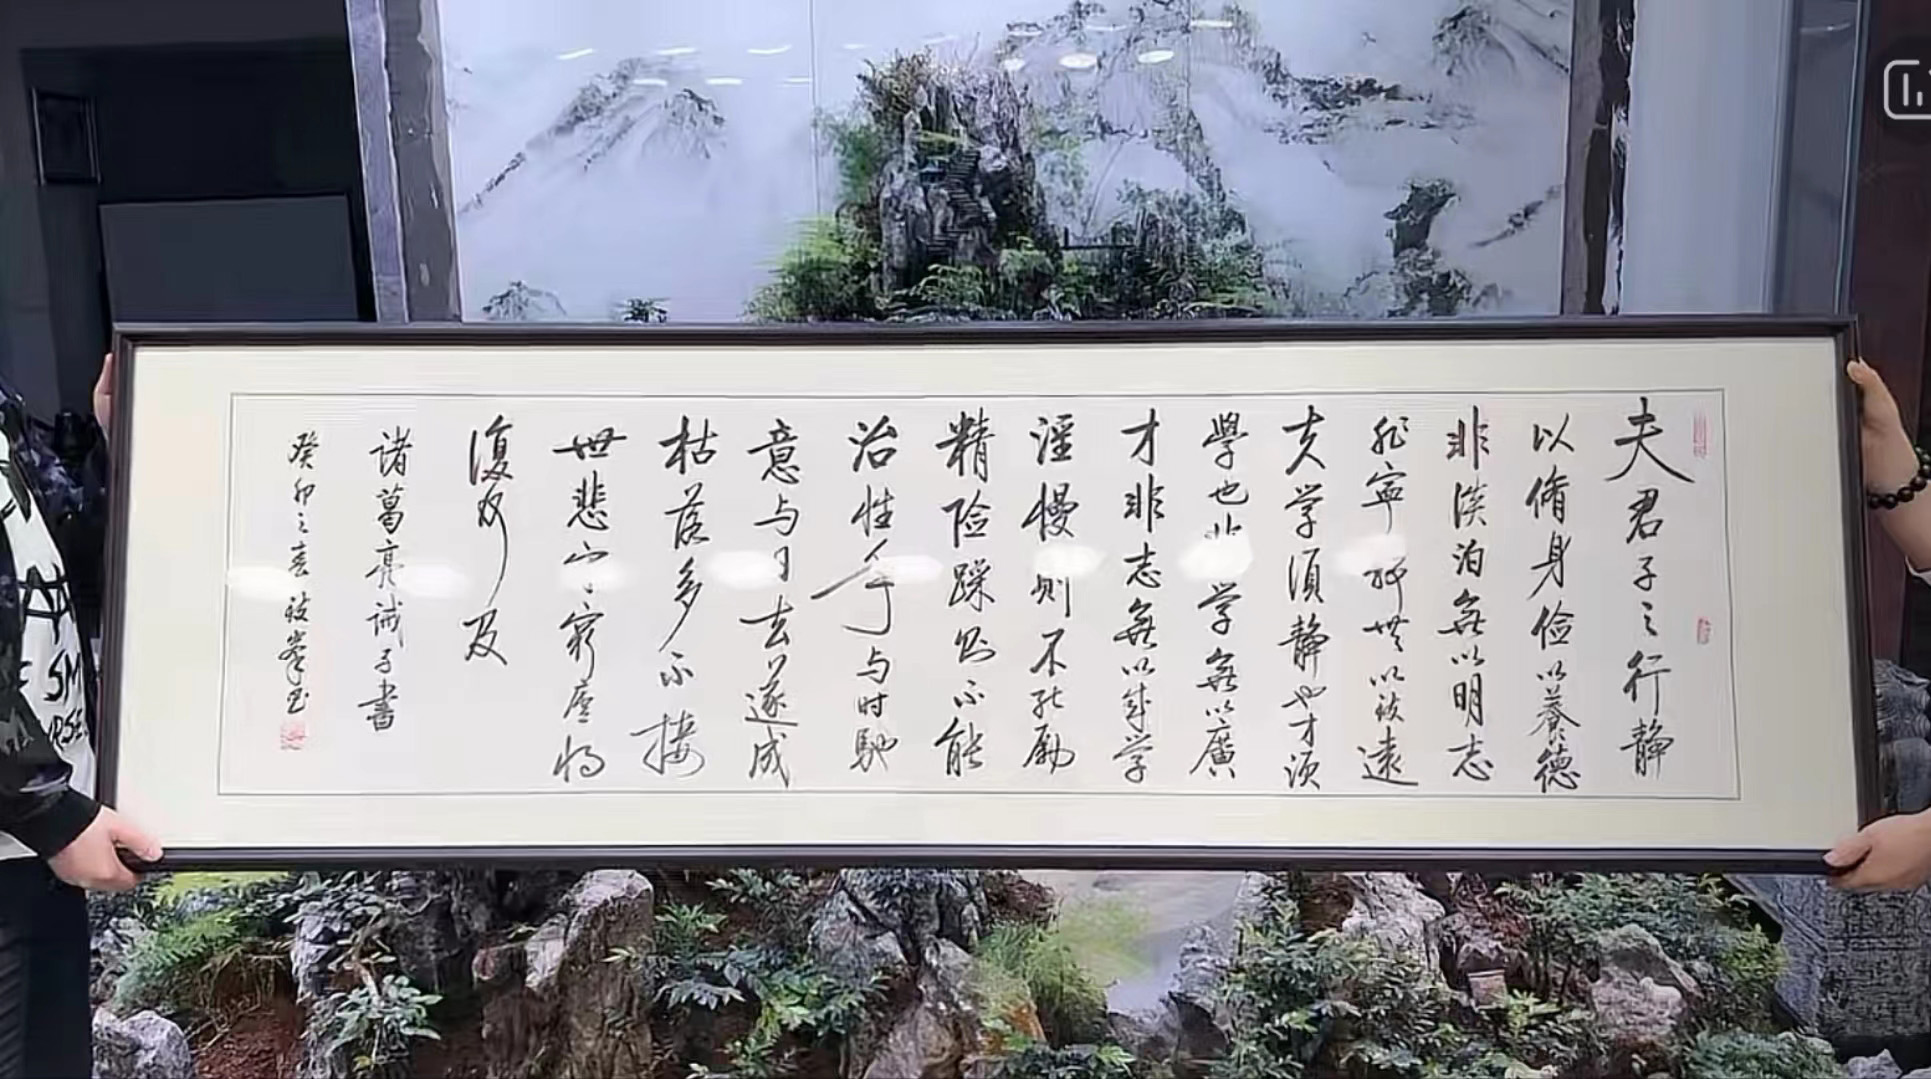 夫君子之行静
以脩身俭以養德
非淡泊無以明志
非寧静无以致遠
夫学須静也才須
學也非学無以廣
才非志無以成学
淫慢则不能励
精险躁则不能
治性年与时驰
意与日去遂成
枯落多不接
世悲守穷廬将
復何及
诸葛亮诫子書
癸卯之春